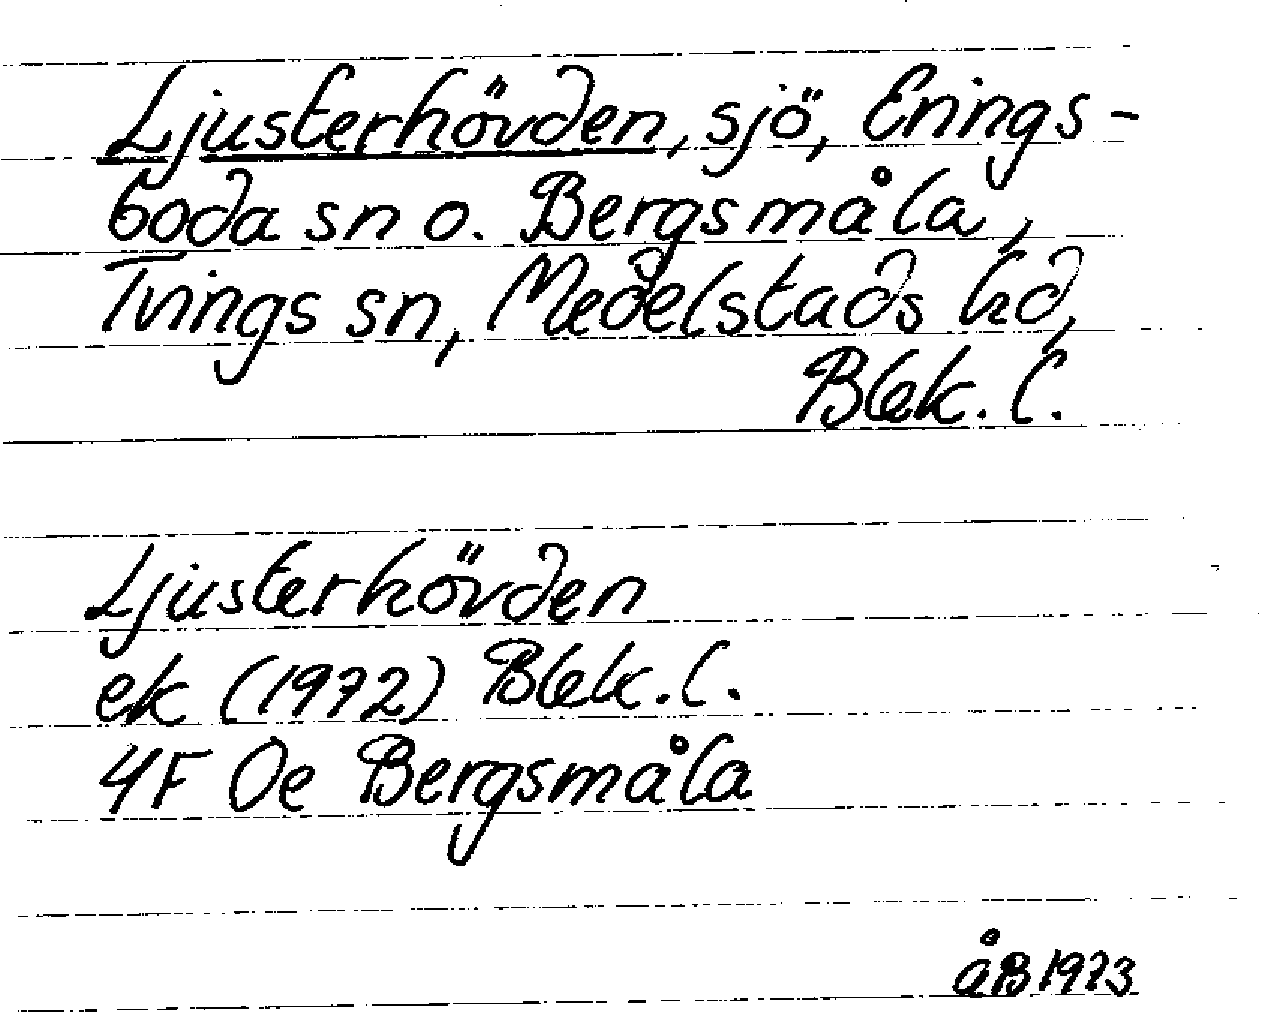 Ljusterhövden, sjö, Erings-
boda sn o. Bergsmåla,
Tvings sn, Medelstads hd,
Blek. l.
Ljusterhövden
ek (1972) Blek. l.
4F Oe Bergsmåla
åB 1973